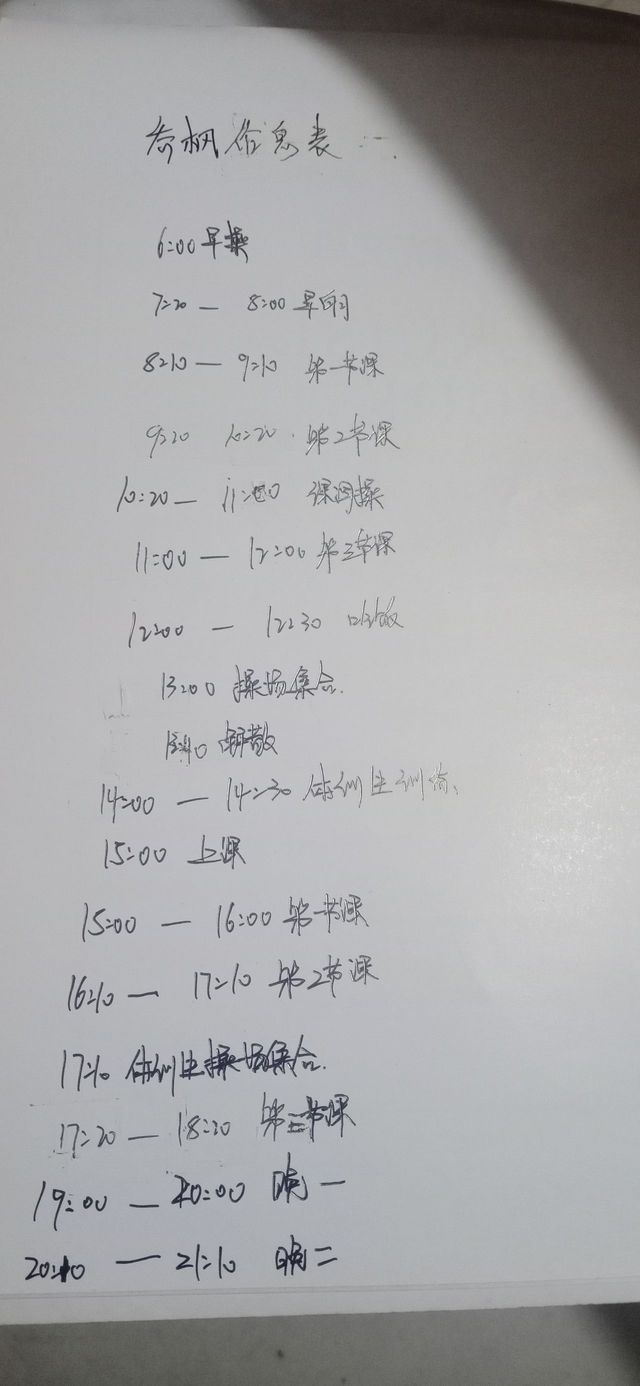 作息表
6:00 早操
7:20 — 8:00 早自习
8:10 — 9:10 第一节课
9:20 10:20 第2节课
10:20 — 11:00 课间操
11:00 — 12:00 第三节课
12:00 — 12:30 吃饭
13:00 操场集合.
解散
14:00 — 14:30 体训生训练、
15:00 上课
15:00 — 16:00 第一节课
16:10 — 17:10 第2节课
17:10 体训生操场集合.
17:20 — 18:20 第三节课
19:00 — 20:00 晚一
20:10 — 21:10 晚二